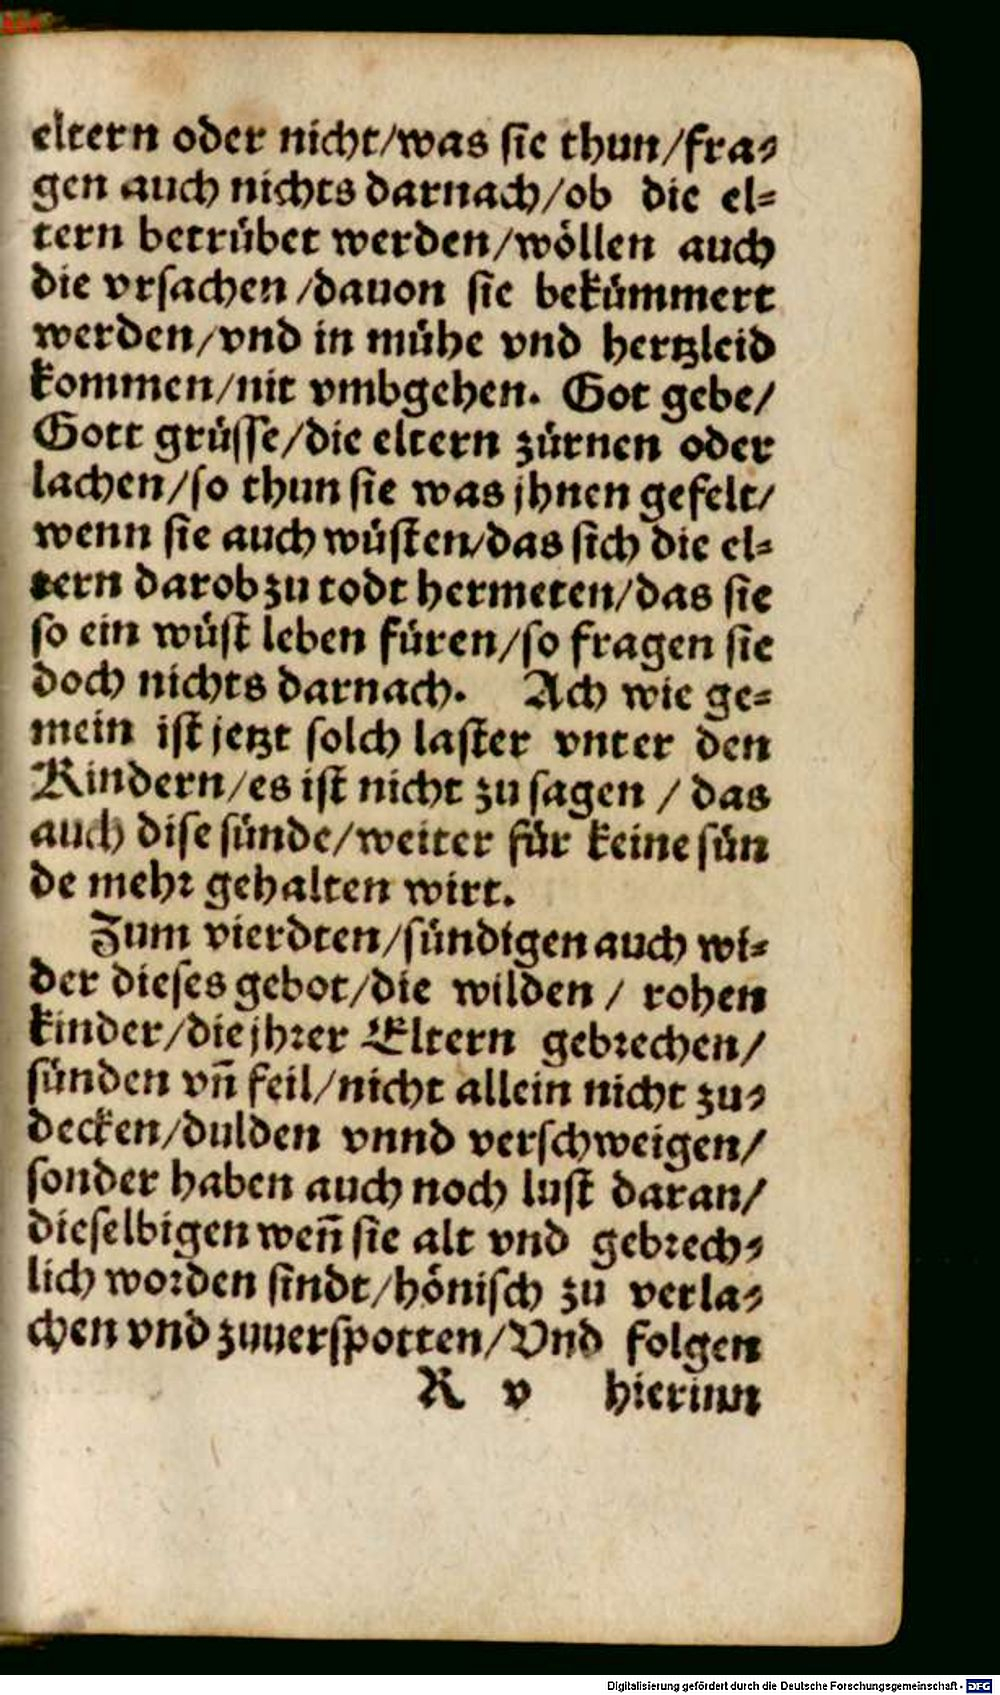 eltern oder nicht/was sie thun/fra-
gen auch nichts darnach/ob die el-
tern betrübet werden/wöllen auch
die vrsachen/dauon sie bekümmert
werden/vnd in mühe vnd hertzleid
kommen/nit vmbgehen. Got gebe/
Gott grüsse/die eltern zürnen oder
lachen/so thun sie was jhnen gefelt/
wenn sie auch wüsten/das sich die el-
tern darob zu todt hermeten/das sie
so ein wüst leben füren/so fragen sie
doch nichts darnach. Ach wie ge-
mein ist jetzt solch laster vnter den
Kindern/es ist nicht zu sagen / das
auch dise sünde/weiter für keine sün
de mehr gehalten wirt.
Zum vierdten/sündigen auch wi-
der dieses gebot/die wilden / rohen
kinder/die jhrer Eltern gebrechen/
sünden vñ feil/nicht allein nicht zu-
decken/dulden vnnd verschweigen/
sonder haben auch noch lust daran/
dieselbigen weñ sie alt vnd gebrech-
lich worden sindt/hönisch zu verla-
chen vnd zuuerspotten/Vnd folgen
R v hierinn
Digitalisierung gefördert durch die Deutsche Forschungsgemeinschaft - DFG